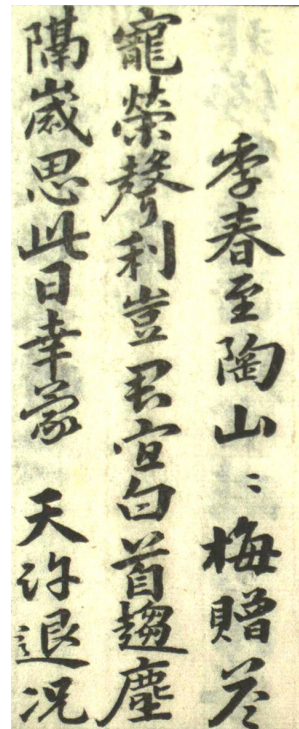 季春至陶山〻梅贈荅
寵榮聲利豈君宜白首趨塵
隔歲思此日幸蒙 天許退况